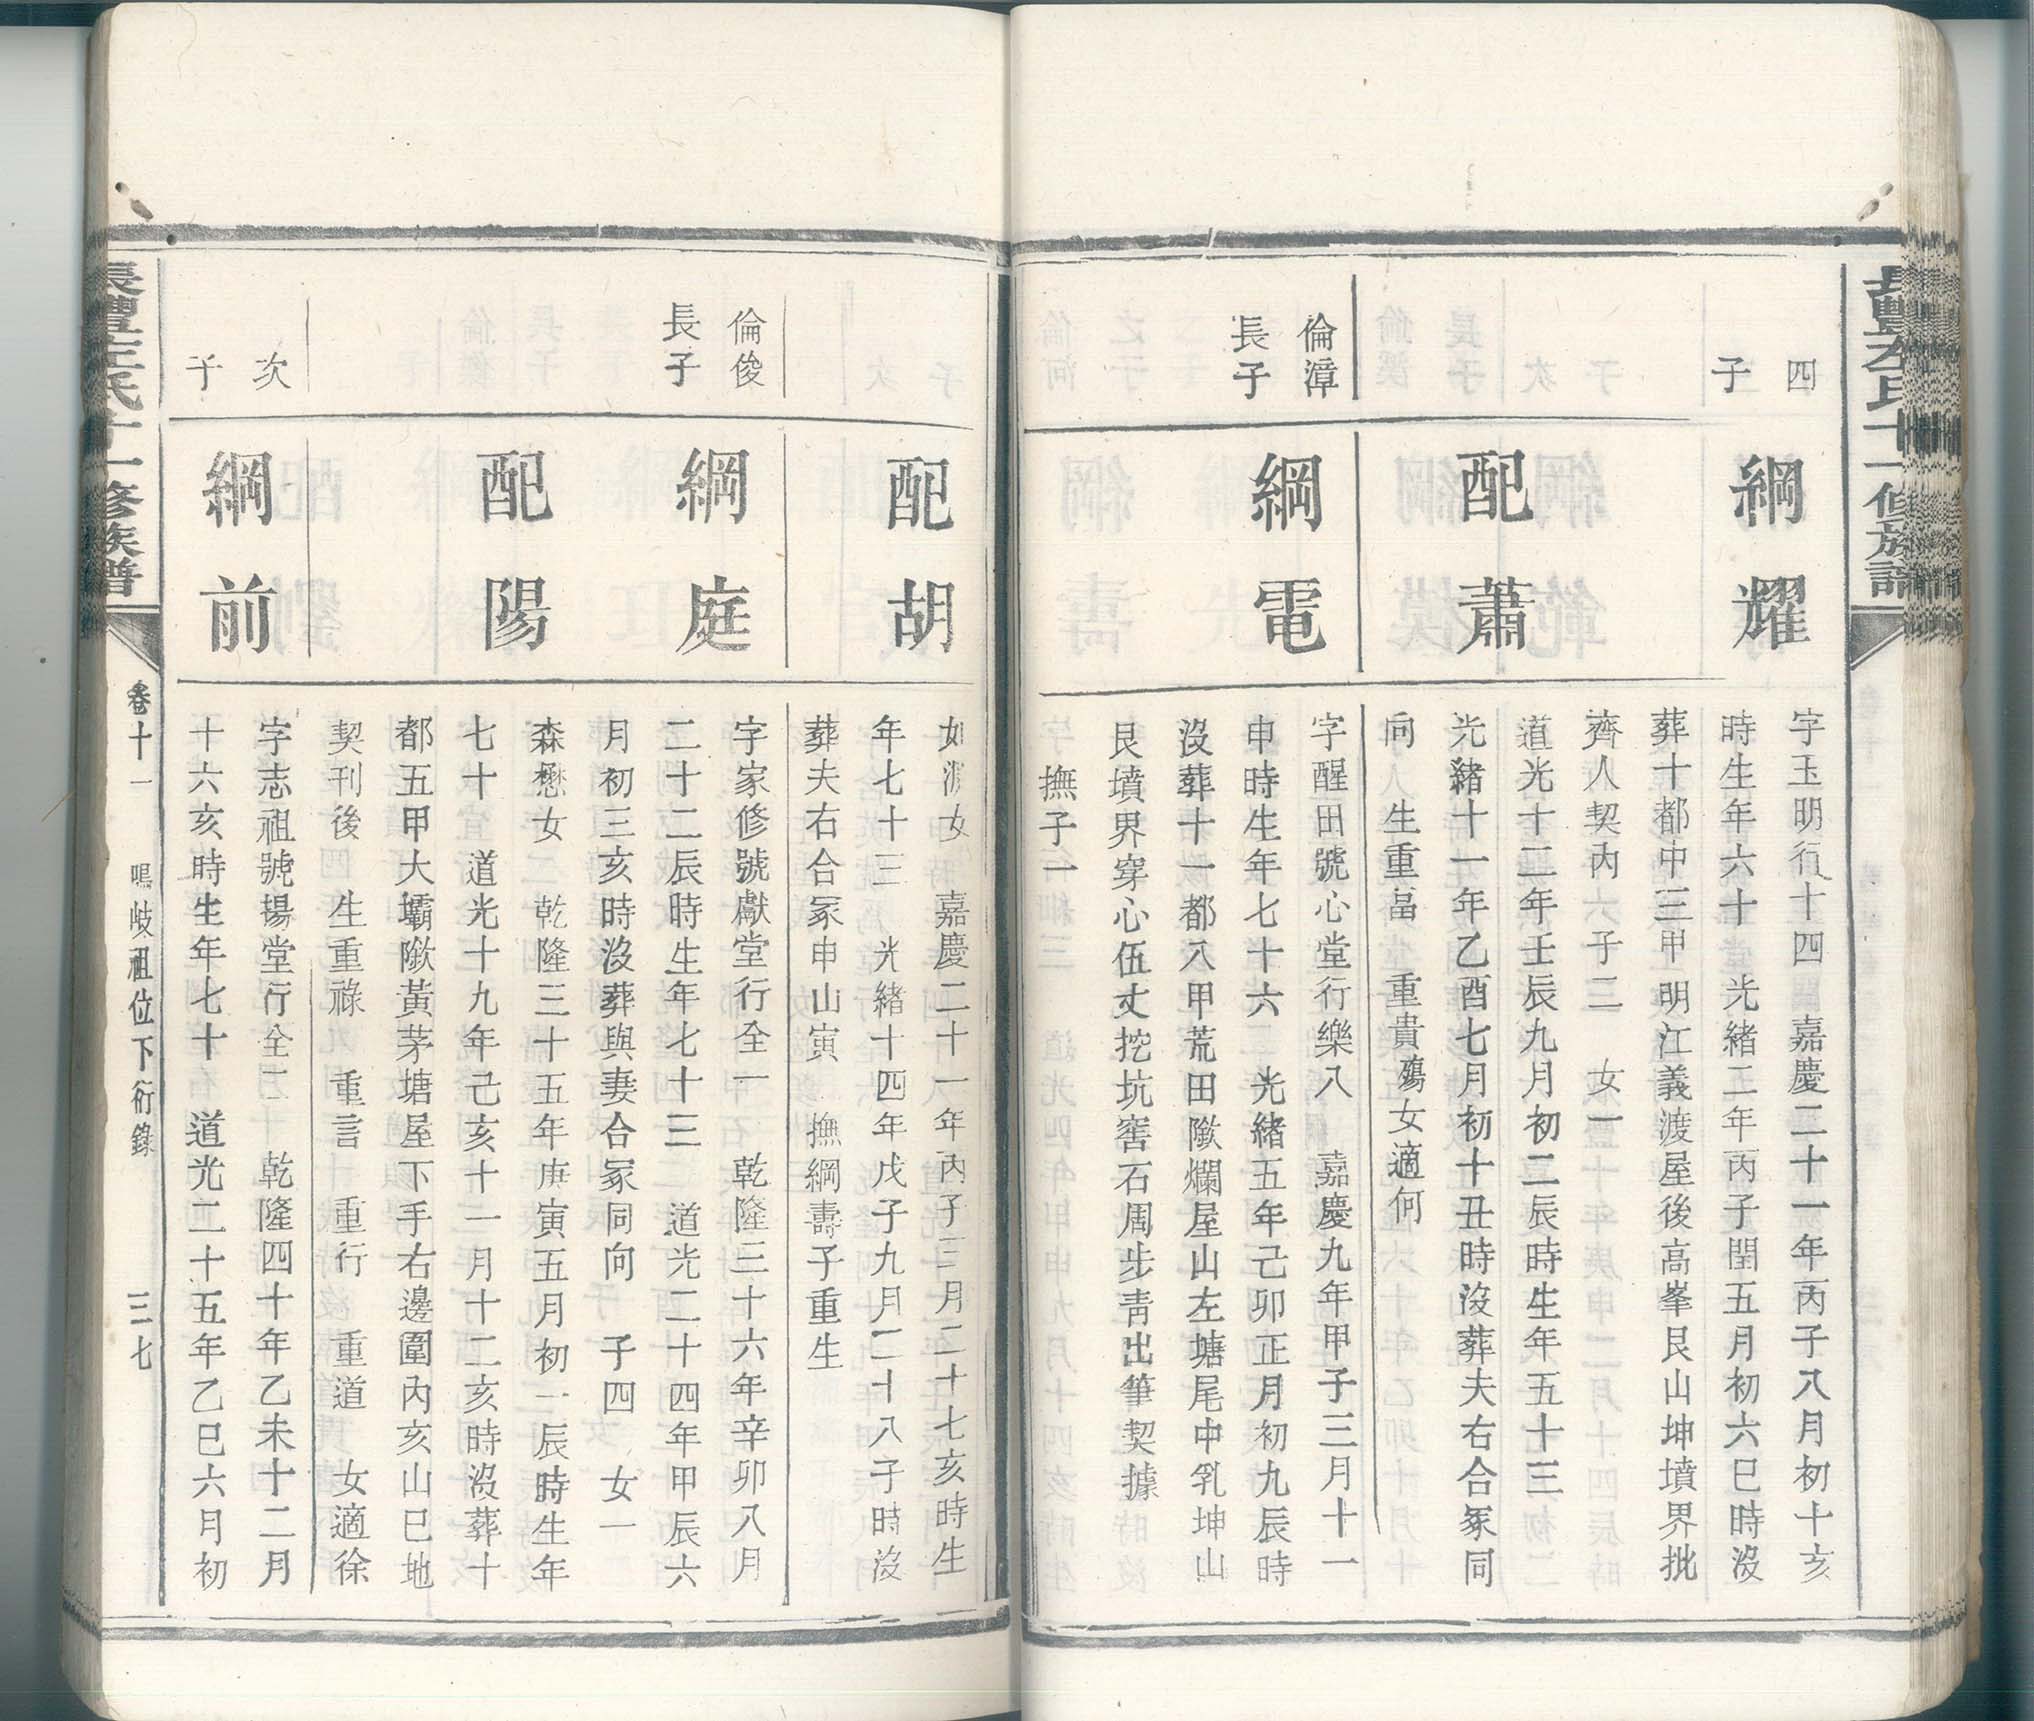 長豐左氏十一修族譜
四
子
綱耀
字玉明行十四　嘉慶二十一年丙子八月初十亥
時生年六十　光緒二年丙子閏五月初六巳時沒
葬十都中三甲明江義渡屋後高峯艮山坤墳界批
濟人契內　六子二　女一
配蕭
道光十二年壬辰九月初二辰時生年五十三
光緒十一年乙酉七月初十丑時沒葬夫右合冢同
向　生重畐　重貴殤女適何
倫漳
長子
綱電
字醒田號心堂行樂八　嘉慶九年甲子三月十一
申時生年七十六　光緒五年己卯正月初九辰時
沒葬十一都八甲荒田隞爛屋山左塘尾中乳坤山
艮墳界穿心伍丈挖坑窖石周步靑出筆契據
撫子一
配胡
如　女　嘉慶二十一年丙子三月二十七亥時生
年七十三　光緒十四年戊子九月二十八子時沒
葬夫右合冢申山寅　撫綱壽子重生
倫俊
長子
綱庭
字家修號獻堂行全一　乾隆三十六年辛卯八月
二十二辰時生年七十三　道光二十四年甲辰六
月初三亥時沒葬與妻合冢同向　子四　女一
配陽
森懋女　乾隆三十五年庚寅五月初一辰時生年
七十　道光十九年己亥十一月十二亥時沒葬十
都五甲大壩隞黃茅塘屋下手右邊圍內亥山巳地
契刊後　生重祿　重言　重行　重道　女適徐
次
子
綱前
字志祖號揚堂行全二　乾隆四十年乙未十二月
十六亥時生年七十　道光二十五年乙巳六月初
長豐左氏十一修族譜
卷十一　鳴岐祖位下衍錄　三七